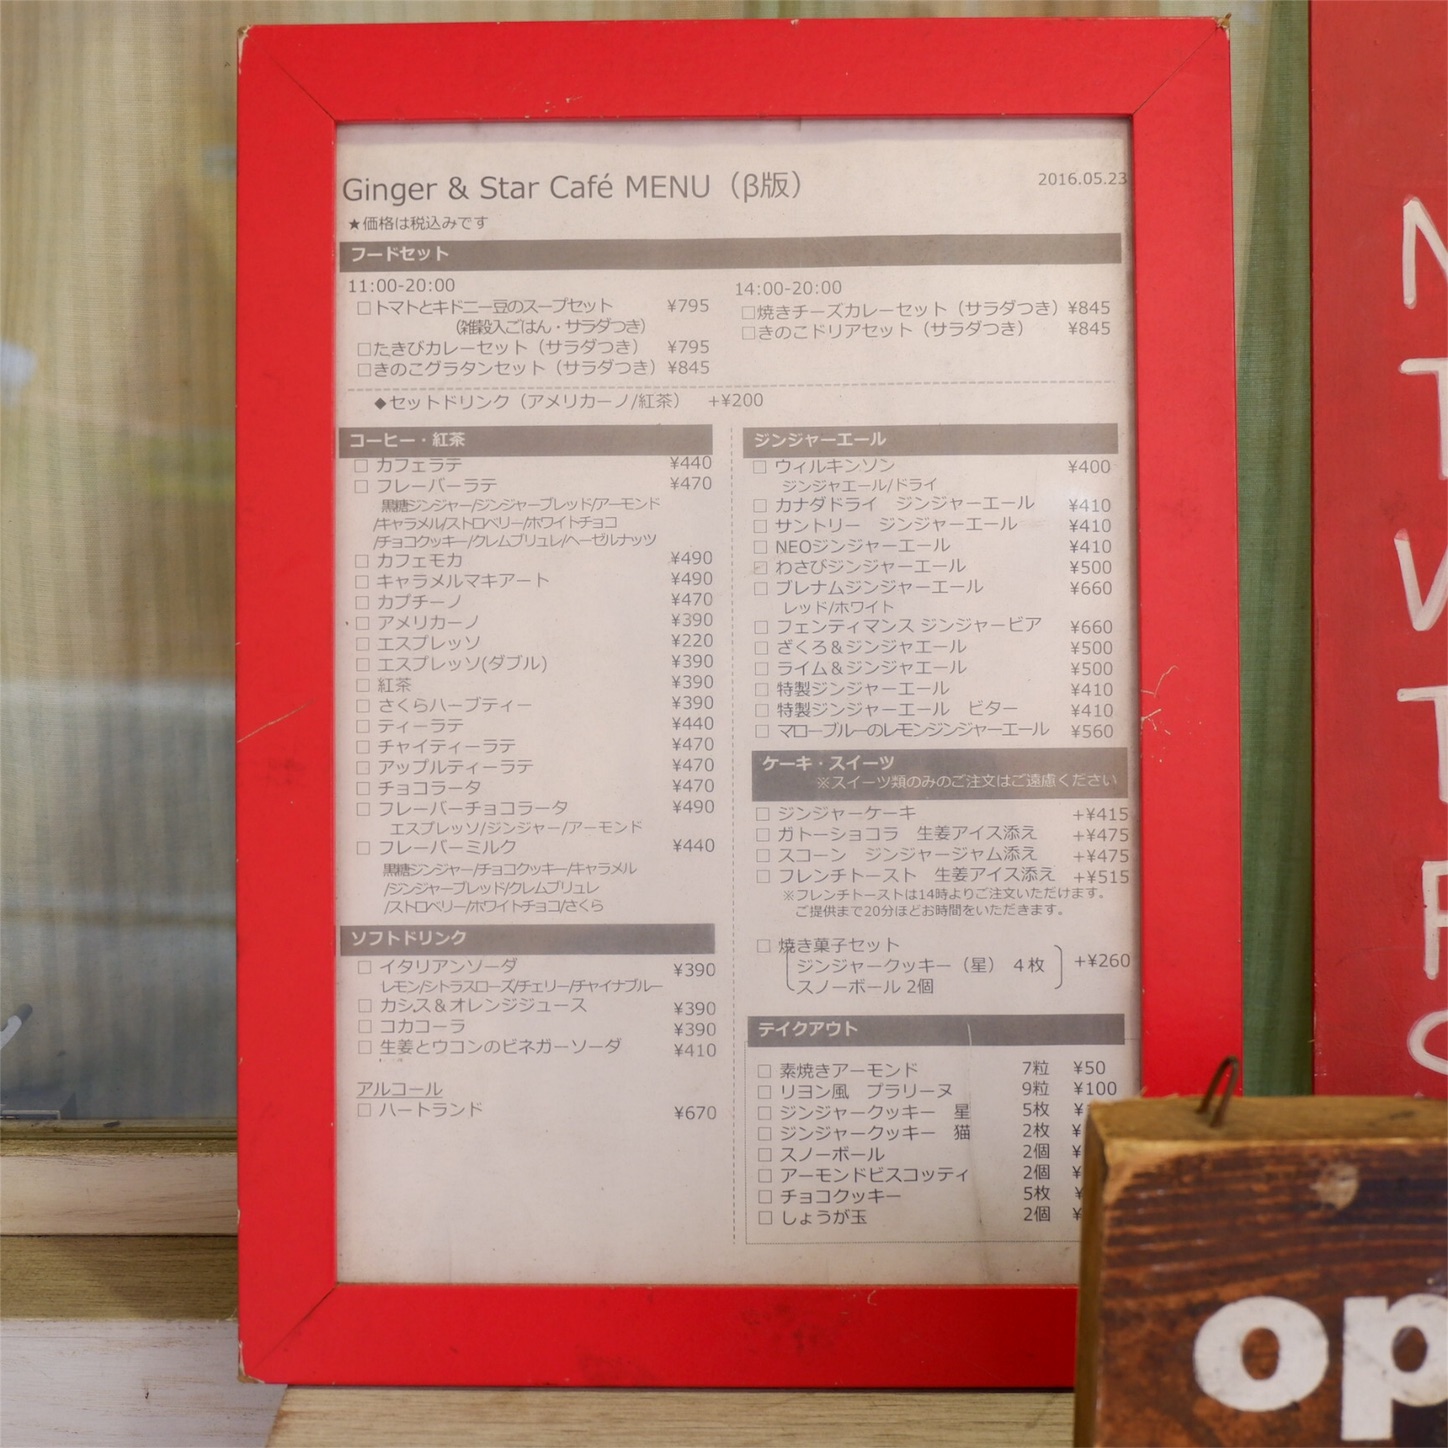 Ginger & Star Café MENU（β版）
2016.05.23
★価格は税込みです
フードセット
11:00-20:00
□トマトとキドニー豆のスープセット ¥795
（雑穀入ごはん・サラダつき）
□たきびカレーセット（サラダつき） ¥795
□きのこグラタンセット（サラダつき）¥845
14:00-20:00
□焼きチーズカレーセット（サラダつき）¥845
□きのこドリアセット（サラダつき） ¥845
◆セットドリンク（アメリカーノ/紅茶） +¥200
コーヒー・紅茶
□ カフェラテ ¥440
□ フレーバーラテ ¥470
黒糖ジンジャー/ジンジャーブレッド/アーモンド
/キャラメル/ストロベリー/ホワイトチョコ
/チョコクッキー/クレムブリュレ/ヘーゼルナッツ
□ カフェモカ ¥490
□ キャラメルマキアート ¥490
□ カプチーノ ¥470
□ アメリカーノ ¥390
□ エスプレッソ ¥220
□ エスプレッソ(ダブル) ¥390
□ 紅茶 ¥390
□ さくらハーブティー ¥390
□ ティーラテ ¥440
□ チャイティーラテ ¥470
□ アップルティーラテ ¥470
□ チョコラータ ¥470
□ フレーバーチョコラータ ¥490
エスプレッソ/ジンジャー/アーモンド
□ フレーバーミルク ¥440
黒糖ジンジャー/チョコクッキー/キャラメル
/ジンジャーブレッド/クレムブリュレ
/ストロベリー/ホワイトチョコ/さくら
ソフトドリンク
□ イタリアンソーダ ¥390
レモン/シトラスローズ/チェリー/チャイナブルー
□ カシス＆オレンジジュース ¥390
□ コカコーラ ¥390
□ 生姜とウコンのビネガーソーダ ¥410
アルコール
□ ハートランド ¥670
ジンジャーエール
□ ウィルキンソン ¥400
ジンジャエール/ドライ
□ カナダドライ　ジンジャーエール ¥410
□ サントリー　ジンジャーエール ¥410
□ NEOジンジャーエール ¥410
□ わさびジンジャーエール ¥500
□ ブレナムジンジャーエール ¥660
レッド/ホワイト
□ フェンティマンス ジンジャービア ¥660
□ ざくろ＆ジンジャエール ¥500
□ ライム＆ジンジャエール ¥500
□ 特製ジンジャーエール ¥410
□ 特製ジンジャーエール　ビター ¥410
□ マローブルーのレモンジンジャーエール ¥560
ケーキ・スイーツ
※スイーツ類のみのご注文はご遠慮ください
□ ジンジャーケーキ +¥415
□ ガトーショコラ　生姜アイス添え +¥475
□ スコーン　ジンジャージャム添え +¥475
□ フレンチトースト　生姜アイス添え +¥515
※フレンチトーストは14時よりご注文いただけます。
ご提供まで20分ほどお時間をいただきます。
□ 焼き菓子セット
ジンジャークッキー（星） 4枚 +¥260
スノーボール 2個
テイクアウト
□ 素焼きアーモンド 7粒 ¥50
□ リヨン風　プラリーヌ 9粒 ¥100
□ ジンジャークッキー　星 5枚 ¥
□ ジンジャークッキー　猫 2枚 ¥
□ スノーボール 2個 ¥
□ アーモンドビスコッティ 2個 ¥
□ チョコクッキー 5枚 ¥
□ しょうが玉 2個 ¥
op